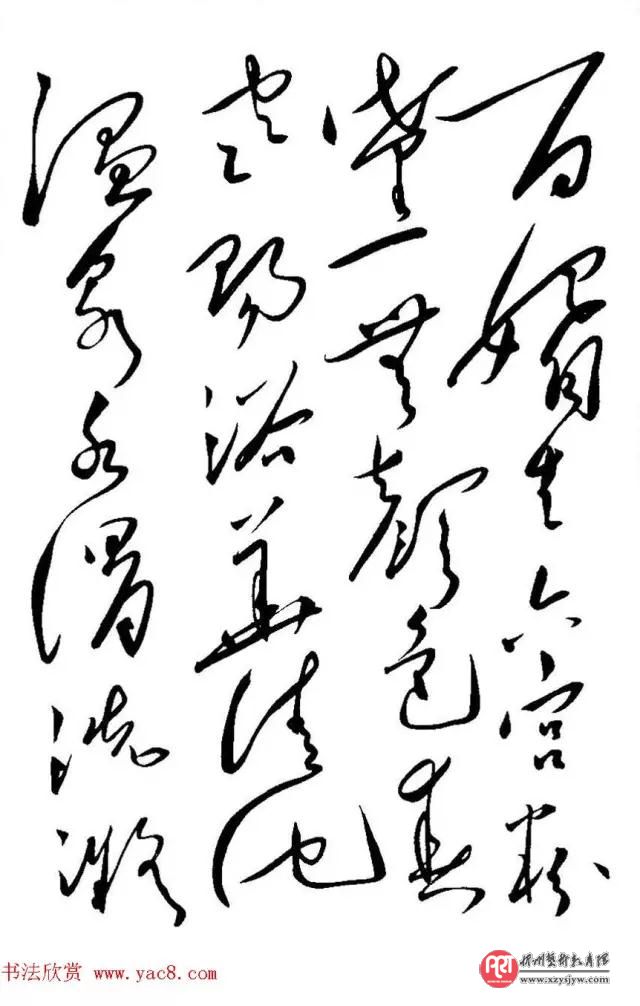 百媚生六宫粉
黛無顔色春
寒賜浴華清池
温泉水滑洗凝
书法欣赏 www.yac8.com
ART
www.xzysjyw.com